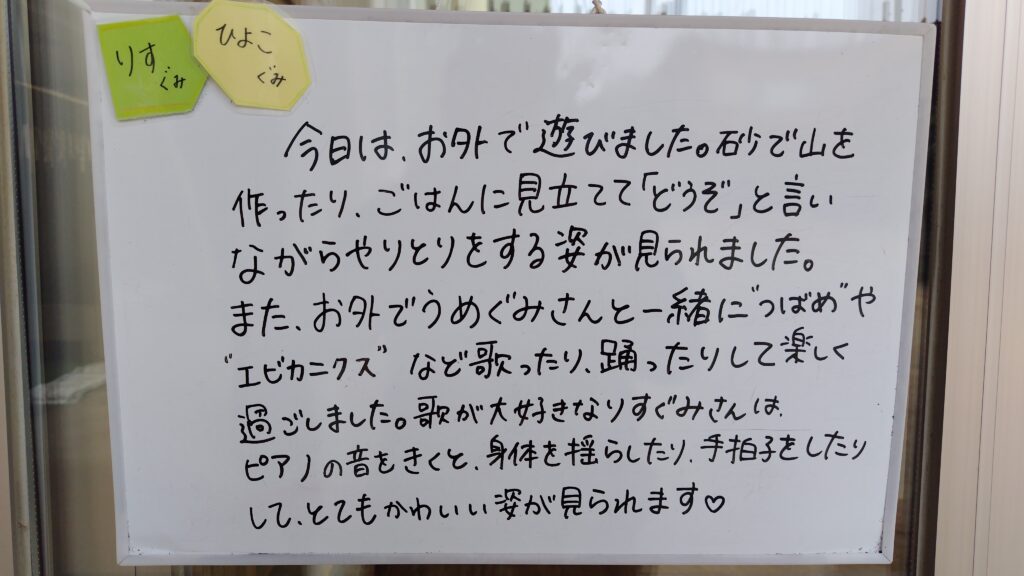 りす
ぐみ
ひよこ
ぐみ
今日は、お外で遊びました。砂で山を
作ったり、ごはんに見立てて「どうぞ」と言い
ながらやりとりをする姿が見られました。
また、お外でうめぐみさんと一緒に"つばめ"や
"エビカニクス"など歌ったり、踊ったりして楽しく
過ごしました。歌が大好きなりすぐみさんは、
ピアノの音をきくと、身体を揺らしたり、手拍子をしたり
して、とてもかわいい姿が見られます♡